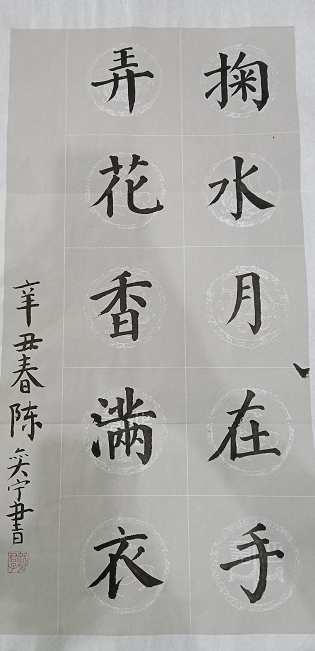 掬水月在手
弄花香满衣
辛丑春陈奕宁书